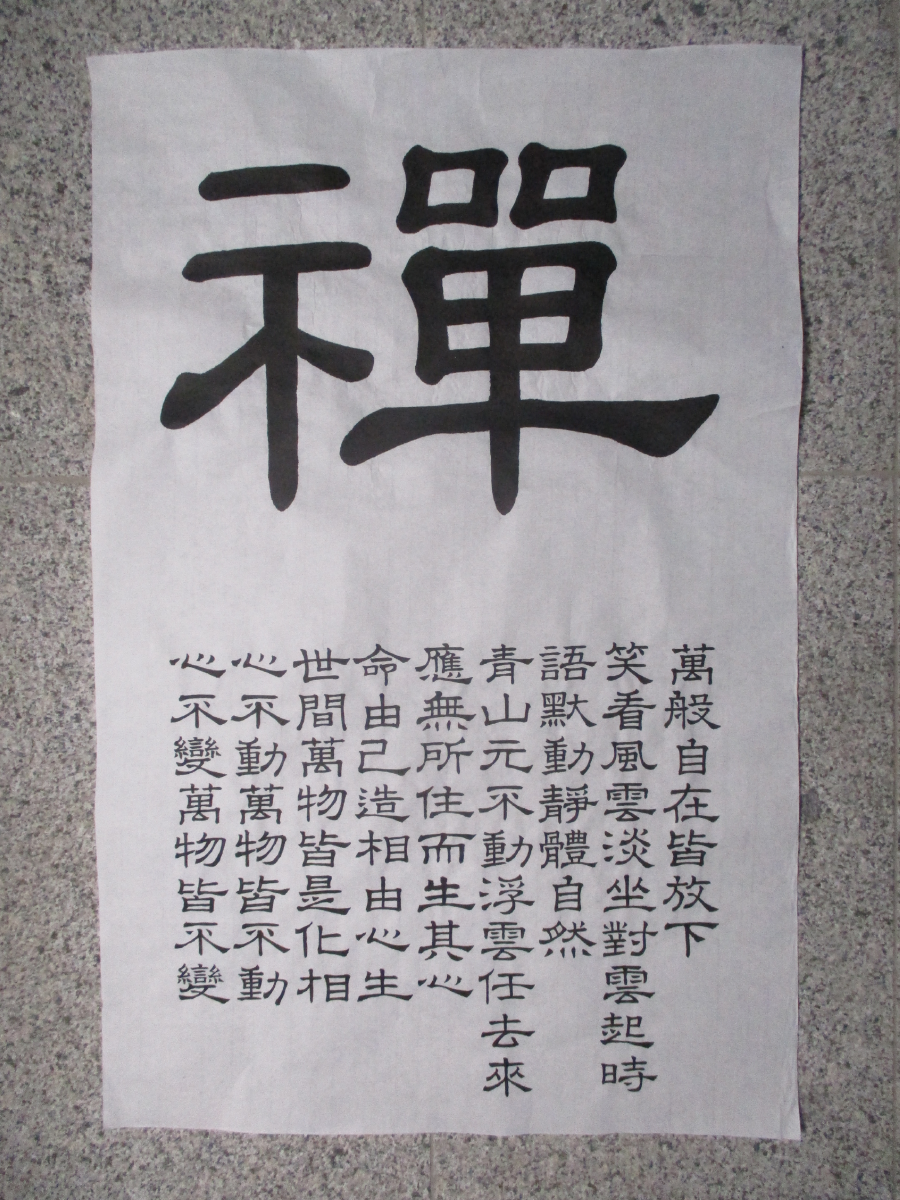 禪
萬般自在皆放下
笑看風雲淡坐對雲起時
語默動靜體自然
青山元不動浮雲任去來
應無所住而生其心
命由己造相由心生
世間萬物皆是化相
心不動萬物皆不動
心不變萬物皆不變